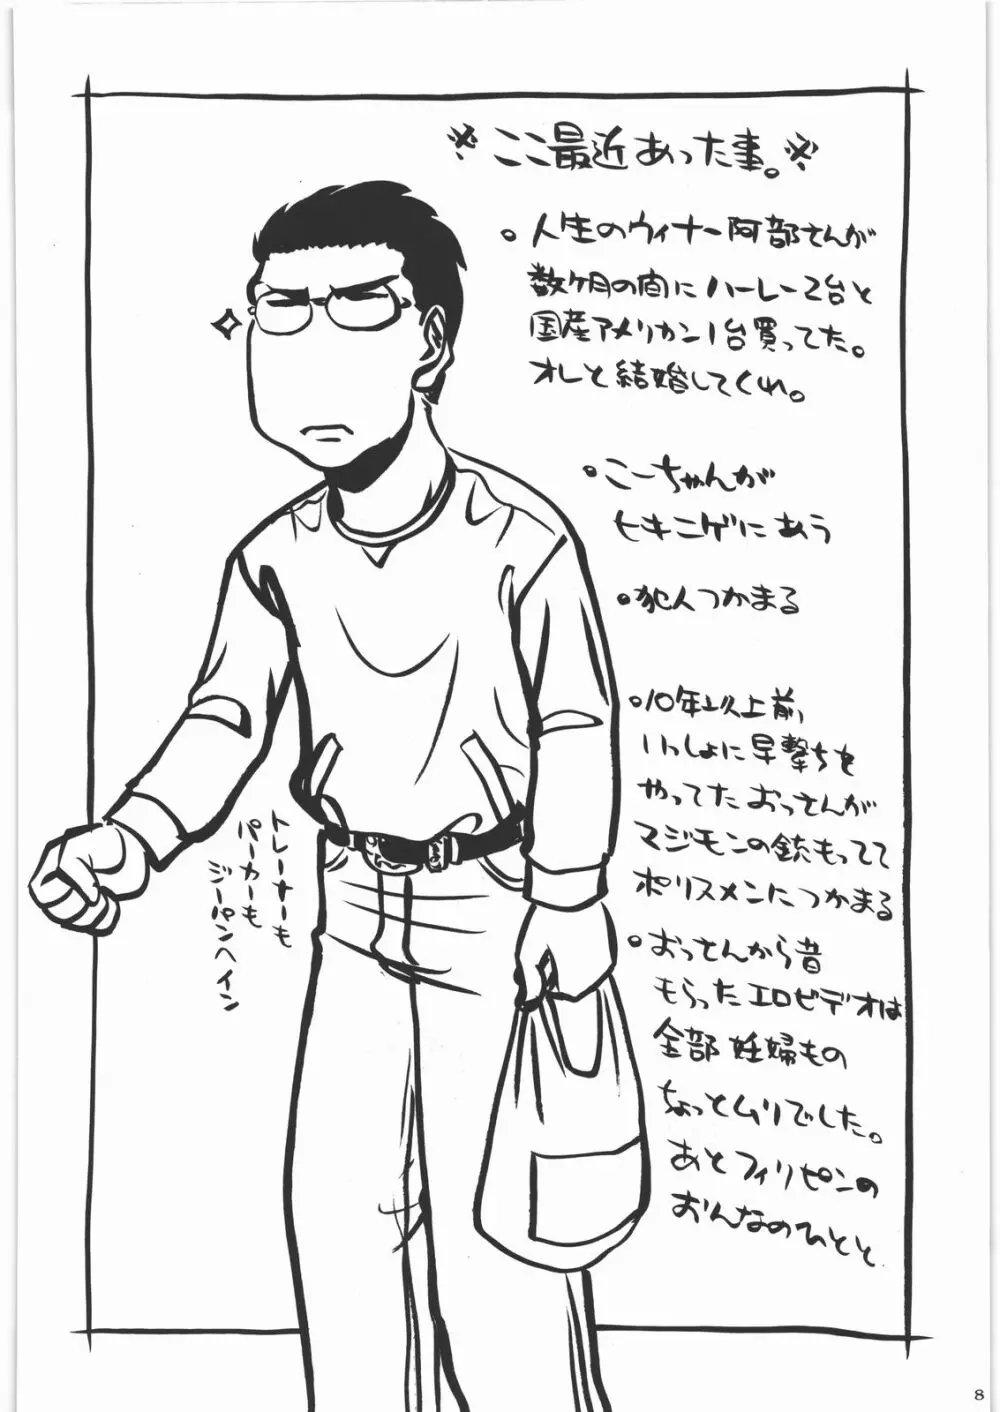 ※ここ最近あった事。※
・人生のウィナー阿部さんが
数ヶ月の間にハーレー2台と
国産アメリカン1台買ってた。
オレと結婚してくれ。
・こーちゃんが
ヒキニゲにあう
・犯人つかまる
・10年以上前、
いっしょに早撃ちを
やってたおっさんが
マジモンの銃もってて
ポリスメンにつかまる
・おっさんから昔
もらったエロビデオは
全部妊婦もの
ちょっとムリでした。
あとフィリピンの
おんなのひとと
トレーナーも
パーカーも
ジーパンへイン
8